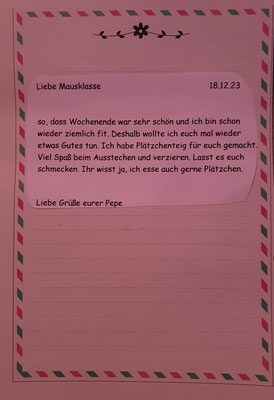 Liebe Mausklasse 18.12.23
so, dass Wochenende war sehr schön und ich bin schon
wieder ziemlich fit. Deshalb wollte ich euch mal wieder
etwas Gutes tun. Ich habe Plätzchenteig für euch gemacht.
Viel Spaß beim Ausstechen und verzieren. Lasst es euch
schmecken. Ihr wisst ja, ich esse auch gerne Plätzchen.
Liebe Grüße eurer Pepe